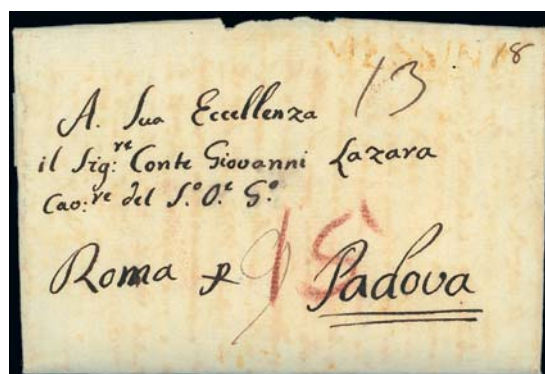 18
13
A. Sua Eccellenza
il Sig:re Conte Giovanni Lazara
Cav:re del S.o O.e G.o
Roma p Padova